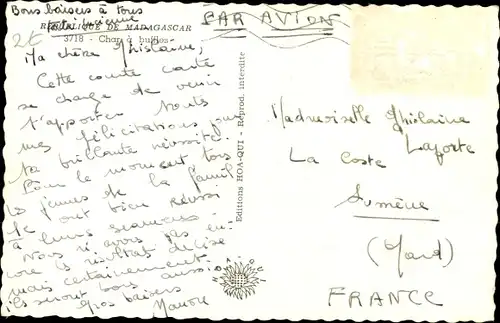 Bons baisers à tous
REPUBLIQUE DE MADAGASCAR
3718 - Char à buffles
2€
PAR AVION
Ma chère Ghislaine,
Cette courte carte
se charge de venir
t'apporter toutes
mes félicitations pour
ta brillante réussite.
Pour le moment tous
les jeunes de la famille
ont bien réussi
à leurs examens.
Nous n'avons pas en-
core le résultat de
mais certainement
ils seront bons aussi
Gros baisers
Editions HOA-QUI - Reprod. interdite
Mademoiselle Ghislaine
Laporte
La Coste
Sumène
(Gard)
FRANCE